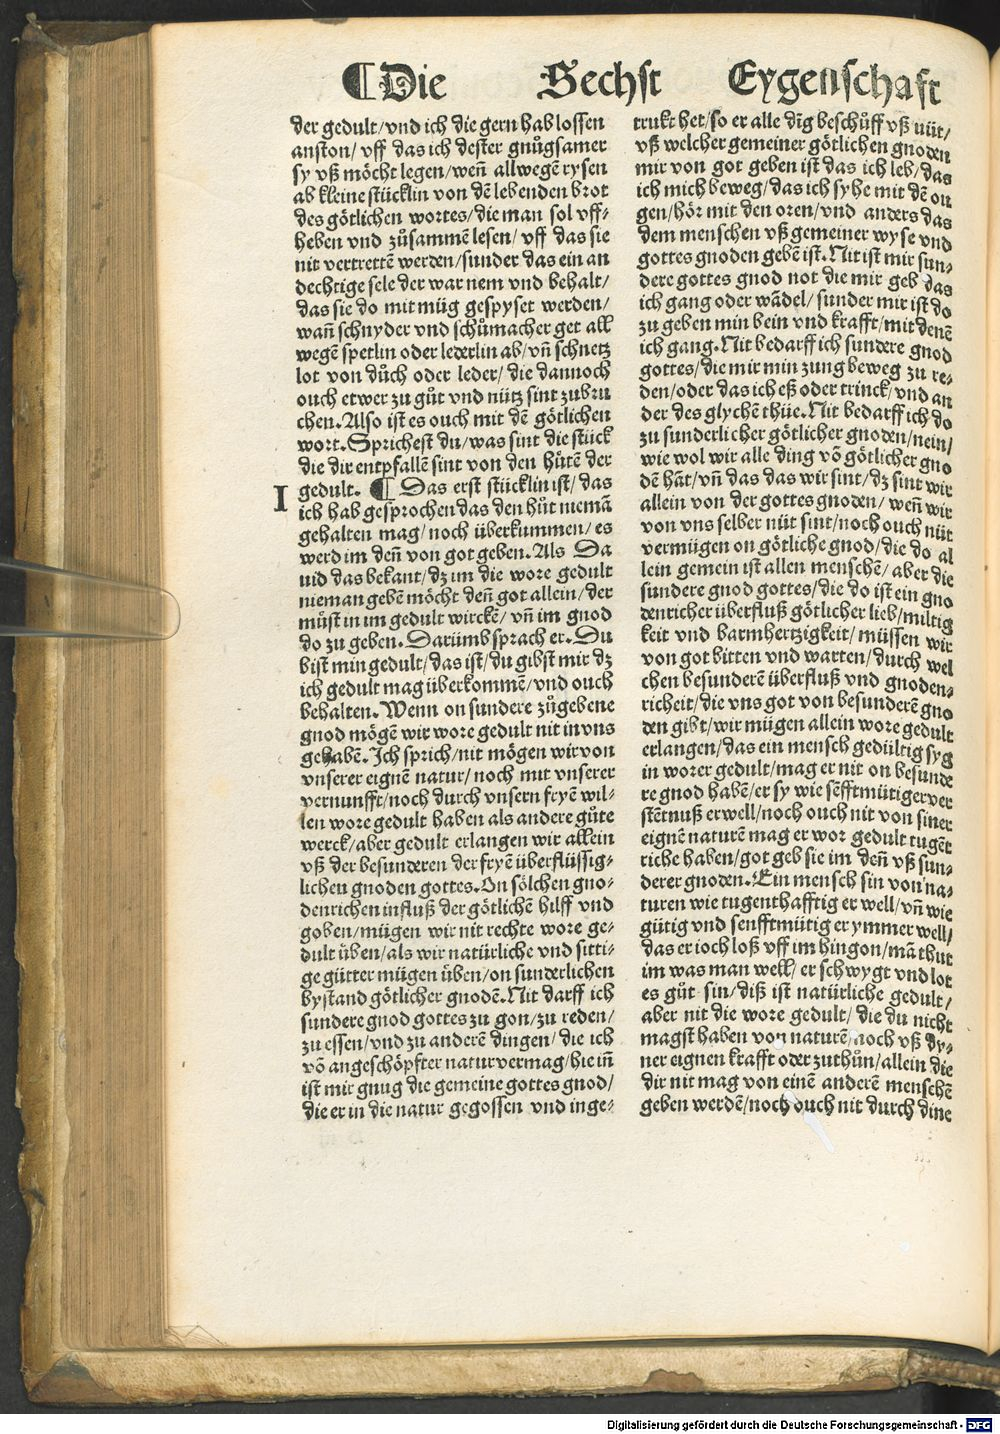 ¶Die Sechst Eygenschaft
der gedult/vnd ich die gern hab lossen
anston/ vff das ich dester gnůgsamer
sy vß möcht legen/weñ allwegẽ rysen
ab kleine stücklin von dẽ lebenden brot
des götlichen wortes/die man sol vff⸗
heben vnd zůsammẽ lesen/ vff das sie
nit vertrettẽ werden/sunder das ein an
dechtige sele der war nem vnd behalt/
das sie do mit müg gespyset werden/
wañ schnyder vnd schůmacher get all
wegẽ spetlin oder lederlin ab/vñ schnetz
lot von důch oder leder/ die dannoch
ouch etwer zu gůt vnd nütz sint zubru
chen. Also ist es ouch mit dẽ götlichen
wort. Sprichest du/was sint die stück
die dir entpfallẽ sint von den hůtẽ der
gedult. ¶ Das erst stücklin ist/ das
I
ich hab gesprochen das den hůt niemã
gehalten mag/noch überkummen/ es
werd im deñ von got geben. Als Da
uid das bekant/dz im die wore gedult
nieman gebẽ möcht deñ got allein/der
müst in im gedult wirckẽ/ vñ im gnod
do zu geben. Darümb sprach er. Du
bist min gedult/das ist/du gibst mir dz
ich gedult mag überkommẽ/vnd ouch
behalten. Wenn on sundere zůgebene
gnod mögẽ wir wore gedult nit in vns
gehabẽ. Ich sprich/nit mögen wir von
vnserer eignẽ natur/noch mit vnserer
vernunfft/noch durch vnsern fryẽ wil⸗
len wore gedult haben als andere gůte
werck/aber gedult erlangen wir allein
vß der besunderen der fryẽ überflüssig⸗
lichen gnoden gottes. On sölchen gno⸗
denrichen influß der götlichẽ hilff vnd
goben/mügen wir nit rechte wore ge⸗
dult üben/als wir natürliche vnd sitti⸗
ge gütter mügen üben/on sunderlichen
bystand götlicher gnodẽ. Nit darff ich
sundere gnod gottes zu gon/zu reden/
zu essen/vnd zu anderẽ dingen/ die ich
võ angeschöpfter natur vermag/hie iñ
ist mir gnug die gemeine gottes gnod/
die er in die natur gegossen vnd inge⸗
trukt het/so er alle dĩg beschůff vß nüt/
vß welcher gemeiner götlichen gnoden
mir von got geben ist das ich leb/das
ich mich beweg/das ich syhe mit dẽ ou
gen/hör mit den oren/vnd anders das
dem menschen vß gemeiner wyse vnd
gottes gnoden gebẽ ist. Nit ist mir sun⸗
dere gottes gnod not die mir geb das
ich gang oder wãdel/ sunder mir ist do
zu geben min bein vnd krafft/mit denẽ
ich gang. Nit bedarff ich sundere gnod
gottes/die mir min zung beweg zu re⸗
den/oder das ich eß oder trinck/vnd an
der des glychẽ thüe. Nit bedarff ich do
zu sunderlicher götlicher gnoden/nein/
wie wol wir alle ding võ götlicher gno
dẽ hãt/vñ das das wir sint/dz sint wir
allein von der gottes gnoden/ weñ wir
von vns selber nüt sint/noch ouch nüt
vermügen on götliche gnod/die do al
lein gemein ist allen menschẽ/ aber die
sundere gnod gottes/die do ist ein gno
denricher überfluß götlicher lieb/miltig
keit vnd barmhertzigkeit/ müssen wir
von got bitten vnd warten/durch wel
chen besunderẽ überfluß vnd gnoden⸗
richeit/die vns got von besunderẽ gno
den gibt/wir mügen allein wore gedult
erlangen/das ein mensch gedültig syg
in worer gedult/mag er nit on besunde
re gnod habẽ/er sy wie sẽfftmütiger ver
stẽtnuß er well/noch ouch nit von siner
eignẽ naturẽ mag er wor gedult tugẽt
riche haben/got geb sie im deñ vß sun⸗
derer gnoden. Ein mensch sin von na⸗
turen wie tugenthafftig er well/vñ wie
gütig vnd senfftmütig er ymmer well/
das er ioch loß vff im hingon/mã thut
im was man well/ er schwygt vnd lot
es gůt sin/diß ist natürliche gedult/
aber nit die wore gedult/ die du nicht
magst haben von naturẽ/noch vß dy⸗
ner eignen krafft oder zuthůn/allein die
dir nit mag von einẽ anderẽ menschẽ
geben werdẽ/noch ouch nit durch dine
Digitalisierung gefördert durch die Deutsche Forschungsgemeinschaft - DFG